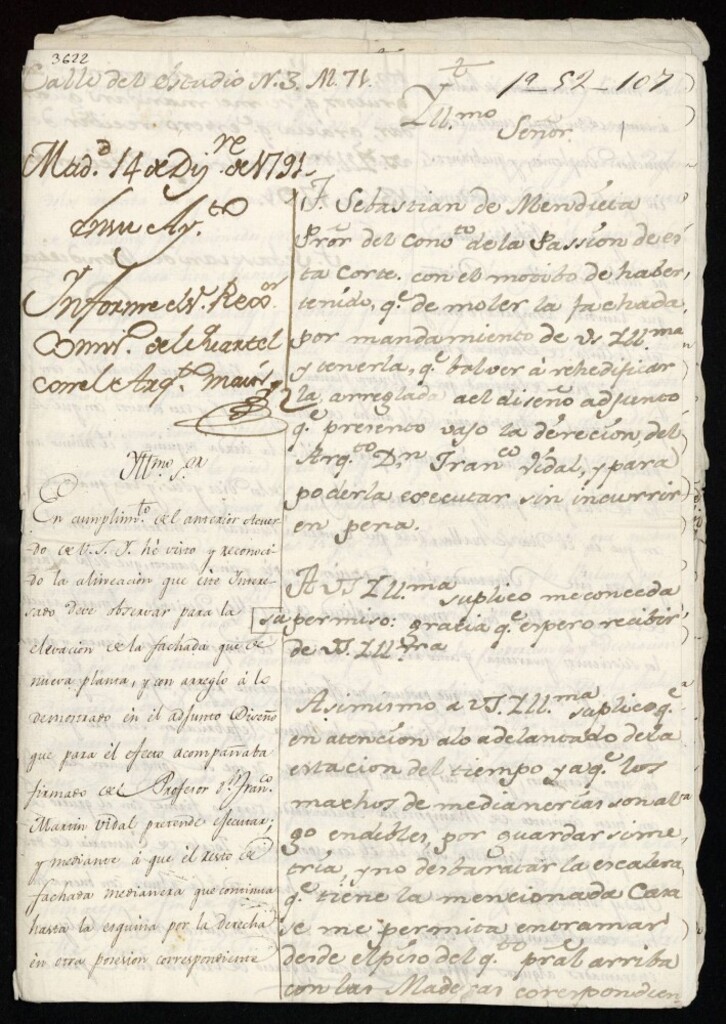 3622
Calle del estudio N. 3. M. 71.
1ª-52-107
Yll.mo
Señor.
Mad.d 14 de Diz.re de 1791.
En su Ay.to
Ynforme el S.r Rex.or
Comis.o del Quartel
con el Arq.to maior
Yll.mo S.or
En cumplim.to del anterior Acuer
do de V.S.Y. hé visto y reconoci
do la alineacion que este Intere
sado deve observar para la
elevacion de la fachada que de
nueva planta, y con arreglo à lo
demostrado en el adjunto Diseño
que para el efecto acompañaba
firmado del Profesor D.n Fran.co
Martin Vidal pretende efecutar;
y mediante à que el resto de
fachada medianera que continua
hasta la esquina por la derecha
en otra posesion correspondiente
F. Sebastian de Mendieta
Pror del Conv.to de la Passion de es
ta Corte. con el motibo de haber,
tenido, q.e de moler la fachada
por mandamiento de VS. Ill.ma
y tenerla, q.e bolver à rehedificar
la, arreglada ael diseño adjunto
q.e presento vajo la dereción, del
Arq.to D.n Fran.co Vidal, y para
poderla executar sin incurrir
en pena.
A VS Ill.ma suplico me conceda
su permiso: gracia q.e espero recibir
de VS. Ill.ma
Asimismo a VS. Ill.ma suplico q.e
en atención alo adelantado dela
estacion del tiempo y aq.e los
machos de medianerias son al
go endibles, por guardar sime
tría, y no desbaratar la escalera
q.e tiene la mencionada Casa
se me permita entramar
desde el piso del q.to pral arriba
con las Maderas corespondien